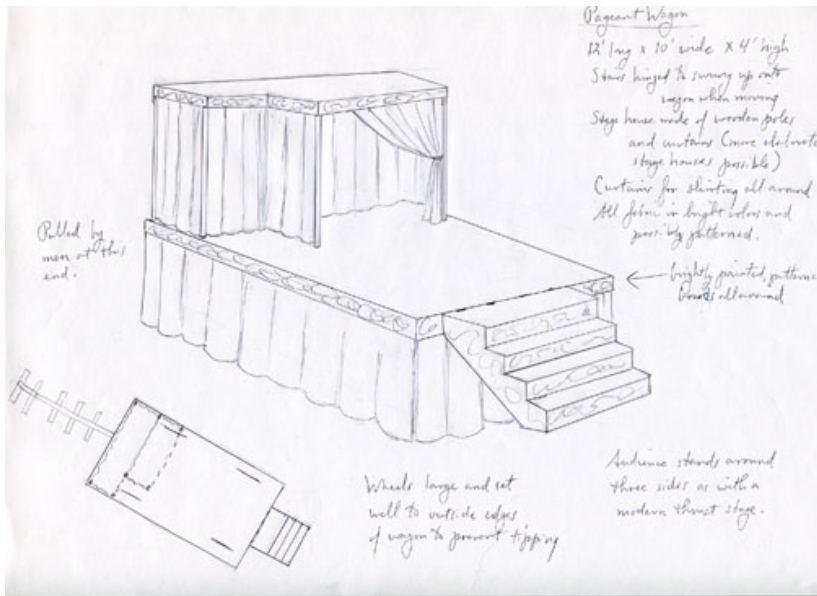 Pageant Wagon
12' long x 10' wide x 4' high
Stairs hinged to swing up onto
wagon when moving
Stage house made of wooden poles
and curtains (more elaborate
stage houses possible)
Curtains for skirting all around
All fabric in bright colors and
possibly patterned.
brightly painted, patterned
boards all around
Pulled by
men at this
end.
Wheels large and set
well to outside edges
of wagon to prevent tipping
Audience stands around
three sides as with a
modern thrust stage.